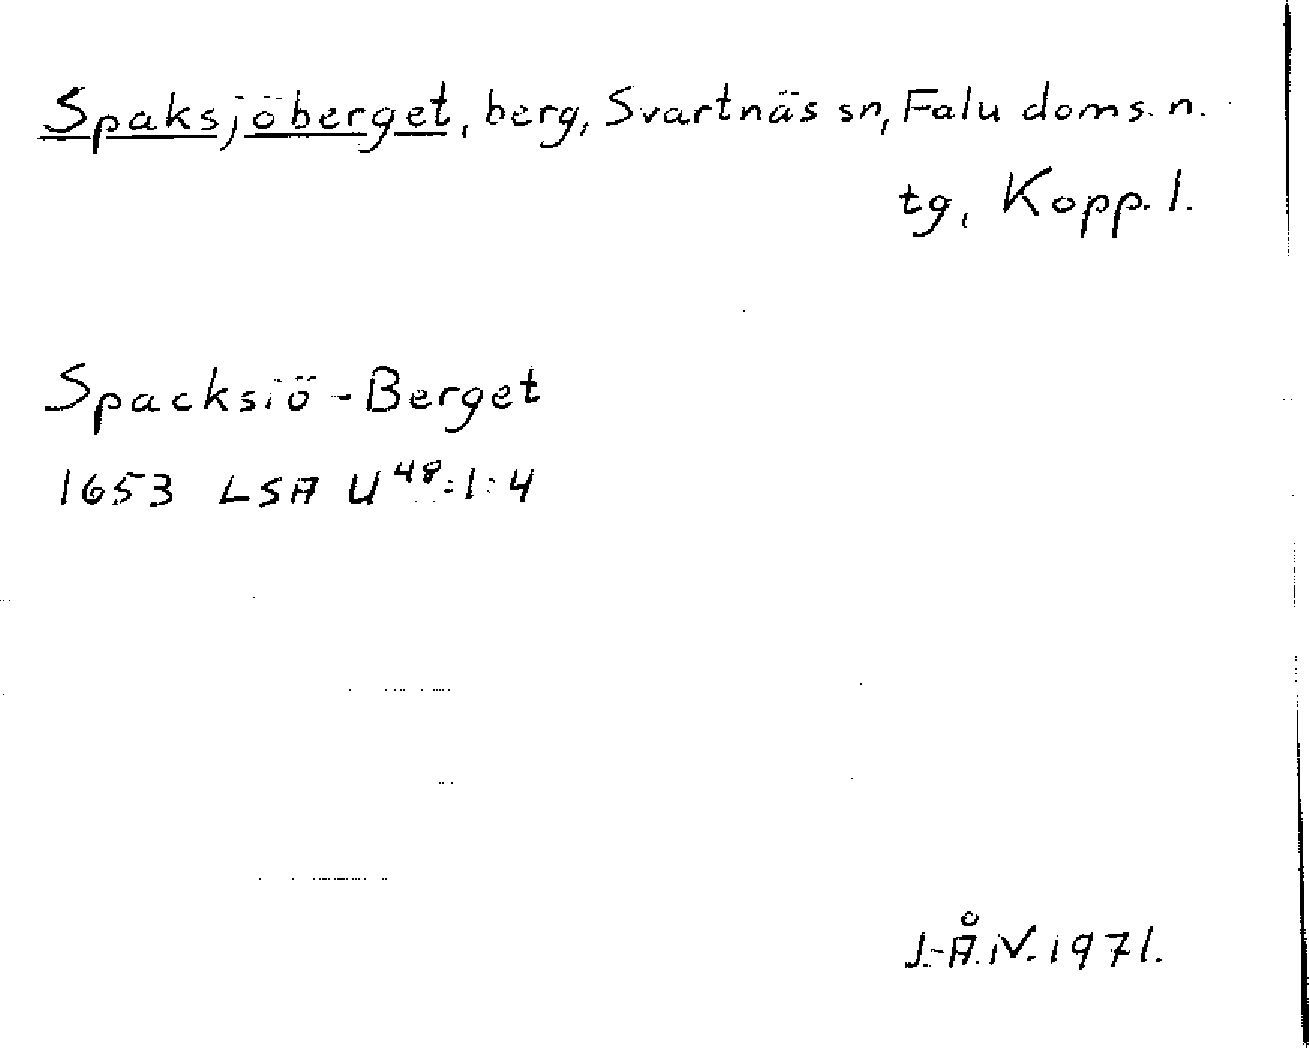 Spaksjöberget, berg, Svartnäs sn, Falu doms. n.
tg, Kopp. l.
Spacksiö-Berget
1653 LSA U⁴⁸:1:4
J.-Å.N. 1971.